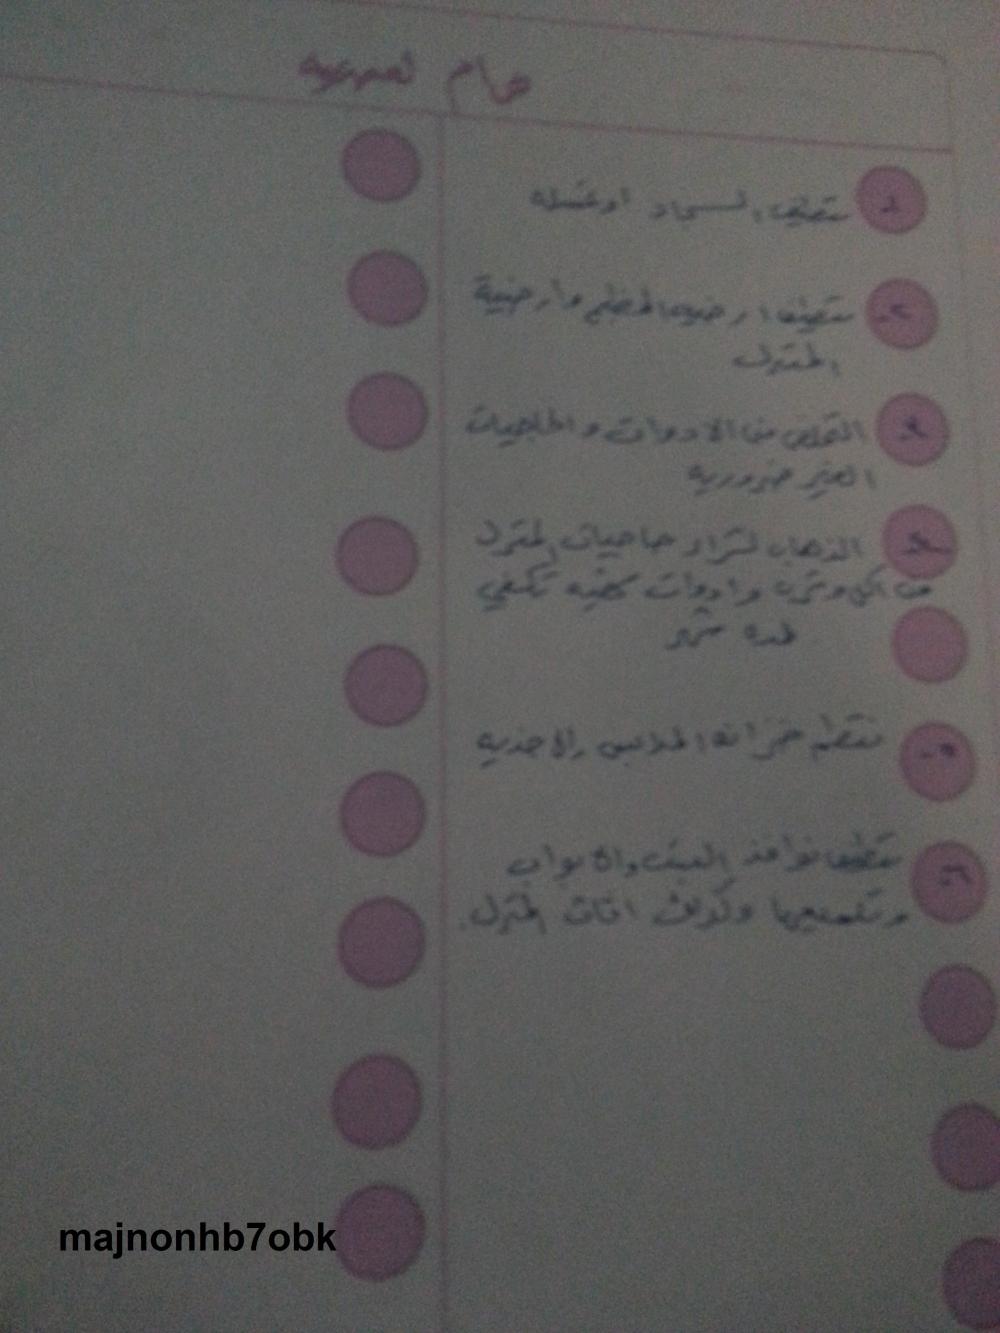 مهام شهريه
١- تنظيف السجاد او غسله
٢- تنظيف ارضيه المطبخ وأرضية
المنزل
٣- التخلص من الادوات والحاجيات
الغير ضروريه
٤- الذهاب لشراء حاجيات المنزل
من اكل وشرب وادوات تكفي
لمده شهر
٥- تنظيم خزانه الملابس والاحذيه
٦- تنظيف نوافذ البيت والابواب
وتلميعها وكذلك اثاث المنزل.
majnonhb7obk